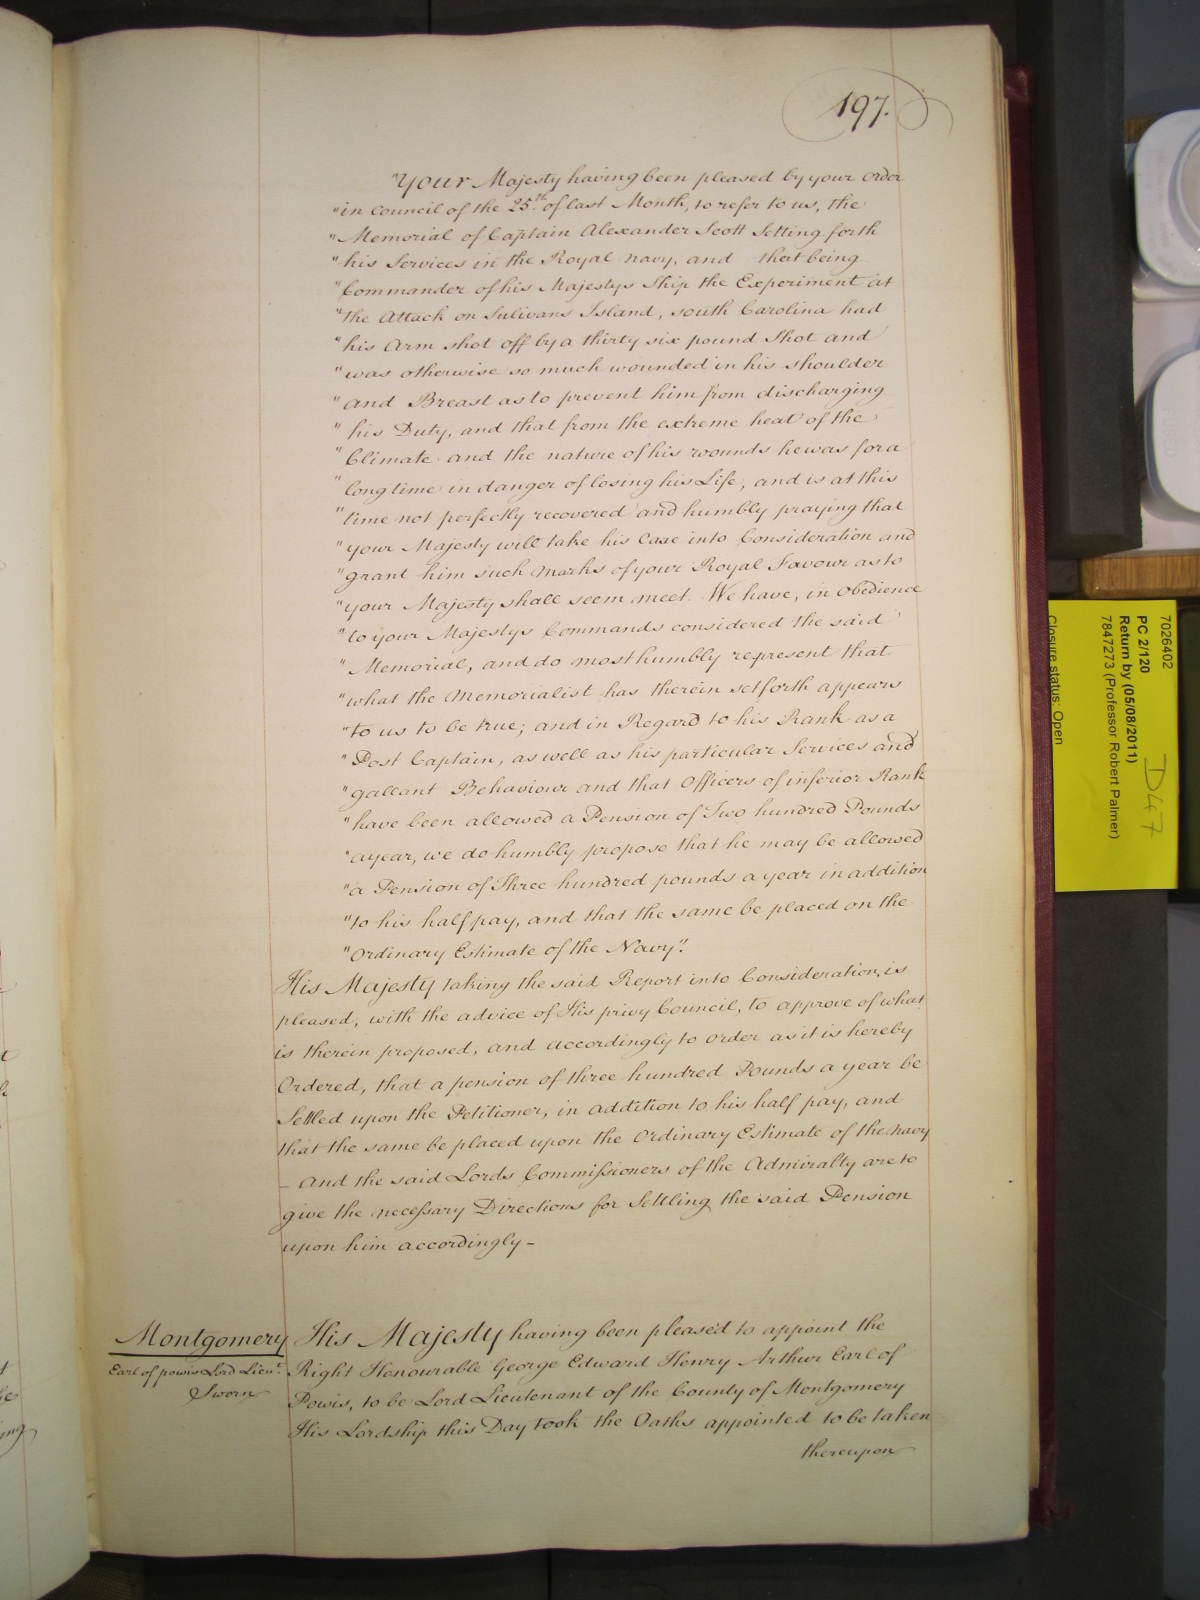 197.
"Your Majesty having been pleased by your Order
"in Council of the 25th of last Month, to refer to us, the
"Memorial of Captain Alexander Scott Setting forth
"his Services in the Royal Navy, and that being
"Commander of his Majestys Ship the Experiment at
"the Attack on Sulivans Island, South Carolina had
"his Arm shot off by a thirty six pound Shot and
"was otherwise so much wounded in his shoulder
"and Breast as to prevent him from discharging
"his Duty, and that from the extreme heat of the
"Climate and the nature of his wounds he was for a
"long time in danger of losing his Life, and is at this
"time not perfectly recovered and humbly praying that
"your Majesty will take his Case into Consideration and
"grant him such Marks of your Royal Favour as to
"your Majesty shall seem meet. We have, in Obedience
"to your Majestys Commands considered the said
"Memorial, and do most humbly represent that
"what the Memorialist has therein setforth appears
"to us to be true; and in Regard to his Rank as a
"Post Captain, as well as his particular Services and
"gallant Behaviour and that Officers of inferior Rank
"have been allowed a Pension of Two hundred Pounds
"a year, we do humbly propose that he may be allowed
"a Pension of Three hundred pounds a year in addition
"to his half pay, and that the same be placed on the
"Ordinary Estimate of the Navy".
His Majesty taking the said Report into Consideration, is
pleased, with the advice of His privy Council, to approve of what
is therein proposed, and accordingly to order as it is hereby
Ordered, that a pension of three hundred Pounds a year be
Settled upon the Petitioner, in addition to his half pay, and
that the same be placed upon the Ordinary Estimate of the Navy
– And the said Lords Commissioners of the Admiralty are to
give the necessary Directions for Settling the said Pension
upon him accordingly –
Montgomery
Earl of powis Lord Lieut.
Sworn
His Majesty having been pleased to appoint the
Right Honourable George Edward Henry Arthur Earl of
Powis, to be Lord Lieutenant of the County of Montgomery
His Lordship this Day took the Oaths appointed to be taken
thereupon
7026402
PC 2/120
Return by (05/08/2011)
7847273 (Professor Robert Palmer)
Closure status: Open
D47